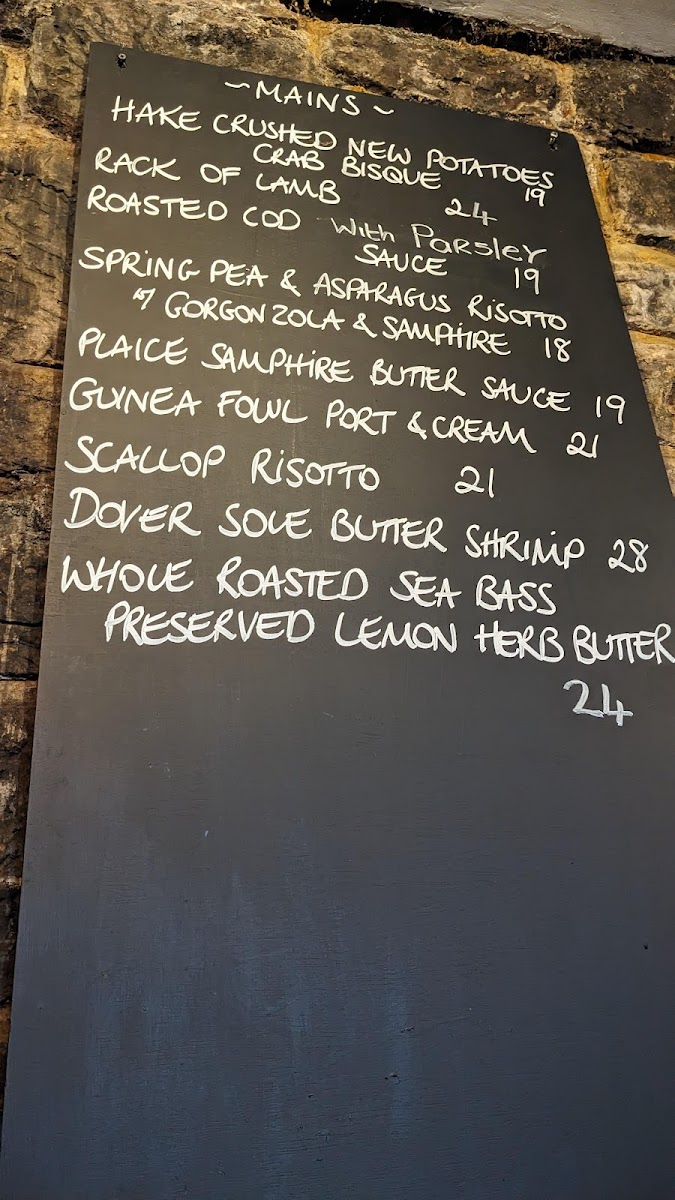 ~MAINS~
HAKE CRUSHED NEW POTATOES
CRAB BISQUE 19
RACK OF LAMB 24
ROASTED COD with Parsley
SAUCE 19
SPRING PEA & ASPARAGUS RISOTTO
GORGONZOLA & SAMPHIRE 18
PLAICE SAMPHIRE BUTTER SAUCE 19
GUINEA FOWL PORT & CREAM 21
SCALLOP RISOTTO 21
DOVER SOLE BUTTER SHRIMP 28
WHOLE ROASTED SEA BASS
PRESERVED LEMON HERB BUTTER
24